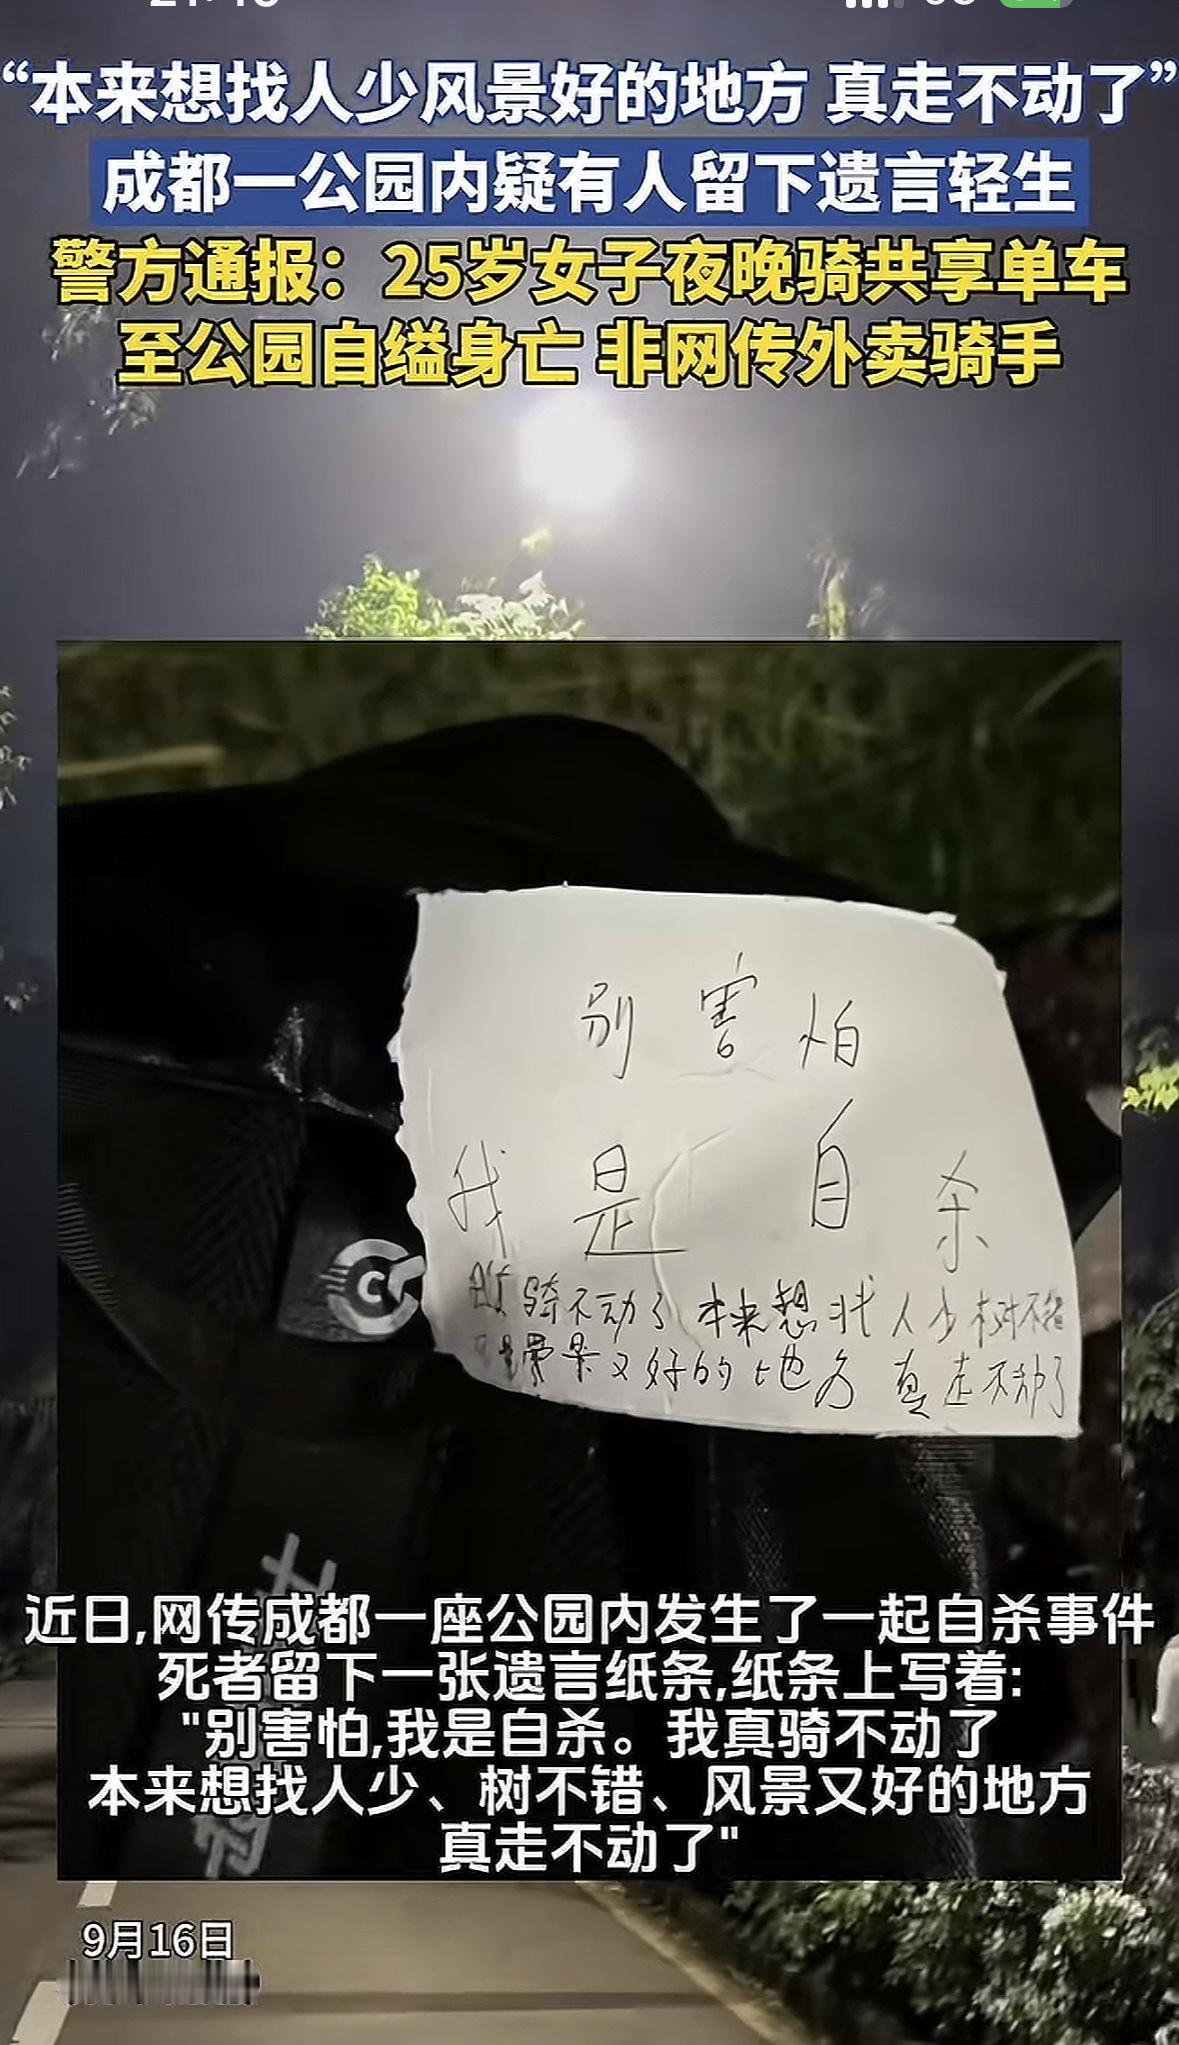 “本来想找人少风景好的地方 真走不动了”
成都一公园内疑有人留下遗言轻生
警方通报：25岁女子夜晚骑共享单车
至公园自缢身亡 非网传外卖骑手
别害怕
我是自杀
骑不动了 本来想找人少树不错
景又好的地方 真走不动了
近日,网传成都一座公园内发生了一起自杀事件
死者留下一张遗言纸条,纸条上写着:
"别害怕,我是自杀。我真骑不动了
本来想找人少、树不错、风景又好的地方
真走不动了"
9月16日